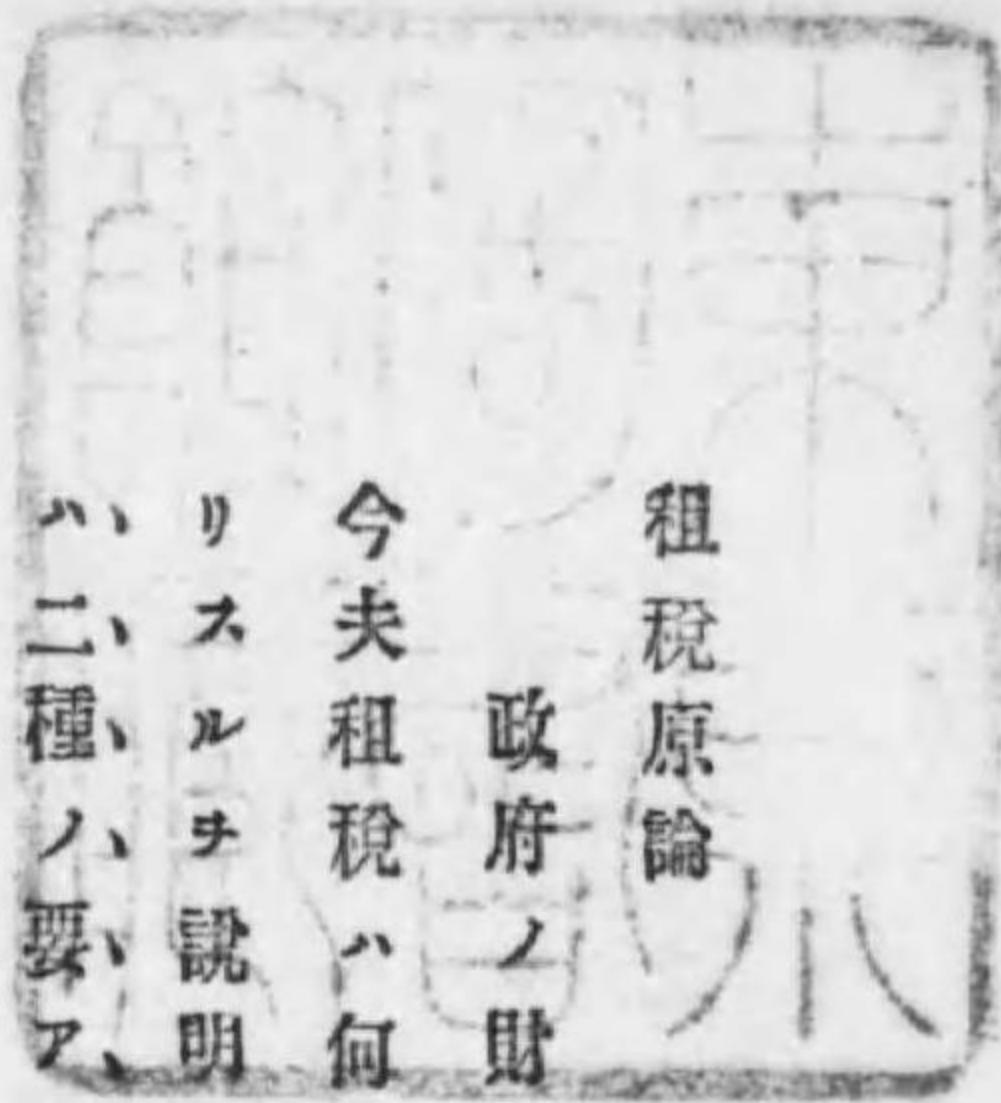 租税原論
政府ノ財
今夫租税ハ何
リスルヲ説明
ハ二種ノ要ア